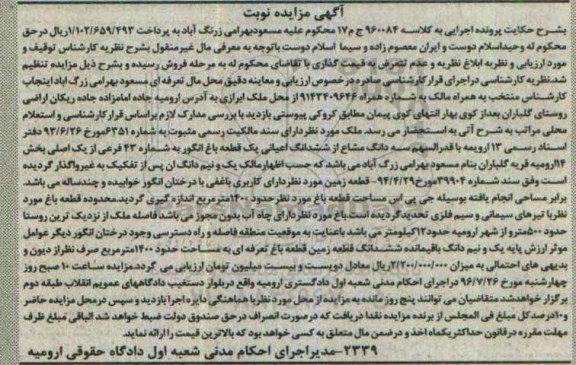 آگهی مزایده نوبت
بشرح حکایت پرونده اجرایی به کلاسه ۹۶۰۰۸۴ ج م ۱۷ محکوم علیه مسعودبهرامی زرنگ آباد به پرداخت ۱/۱۰۲/۶۵۹/۴۹۳ریال درحق
محکوم له وحیداسلام دوست و ایران معصوم زاده و سیما اسلام دوست باتوجه به معرفی مال غیرمنقول بشرح نظریه کارشناس توقیف و
مورد ارزیابی و نظریه ابلاغ نظریه و عدم تعرض به قیمت گذاری با تقاضای محکوم له به مرحله فروش رسیده و بشرح ذیل مزایده تنظیم
شد.نظریه کارشناسی دراجرای قرار کارشناسی صادره درخصوص ارزیابی و معاینه دقیق محل مال تعرفه ای مسعود بهرامی زرگ اباد اینجاب
کارشناس منتخب به همراه مالک به شماره همراه ۹۱۴۳۴۰۹۶۴۶از محل ملک ابرازی به آدرس ارومیه جاده امامزاده جاده ریکان اراضی
روستای گلباران بعداز کوی بهار انتهای کوی پیمان مطابق کروکی پیوستی بازدید با بررسی مدارک لازم براساس قرار کارشناسی و استعلام
محلی مراتب به شرح آتی به استحضار می رسد. ملک مورد نظر دارای سند مالکیت رسمی مثبوت به شماره ۶۳۵۱مورخ ۹۳/۶/۲۶ دفتر
اسناد رسمی ۱۳ ارویمه با قدرالسهم سه دانگ مشاع از ششدانگ اعیانی یک قطعه باغ انگور به شماره ۴۳ فرعی از یک اصلی بخش
۱۴ارومیه قریه گلباران بنام مسعود بهرامی زرگ آباد می باشد که حسب اظهارمالک یک و نیم دانگ ان پس از تفکیک به غیرواگذار گردیده
است وفق سند شماره ۳۹۹۰۴مورخ۹۴/۴/۲۹- قطعه زمین مورد نظر دارای کاربری باغفی با درختان انگور خوابیده و چندساله می باشد.
برابر مساحی انجام یافته بوسیله جی پی اس مساحت قطعه باغ مورد نظرحدود ۱۴۰۰مترمربع اندازه گیری گردید.محدوده قطعه باغ مورد
نظربا تیرهای سیمانی و سیم فلزی تحدیدگردیده است باغ مورد نظردارای چاه آب بدون مجوز می باشد فاصله ملک از نزدیک ترین روستا
حدود ۵۰۰مترو از شهر ارومیه حدود۱۲کیلومتر می باشد باعنایت به موقعیت منطقه فاصله و راه دسترسی وجود درختان انگور دیگر عوامل
موثر ارزش پایه یک و نیم دانگ باقیمانده ششدانگ قطعه زمین قطعه باغ تعرفه ای به مساحت حدود ۱۴۰۰مترمربع صرف نظر از دیون و
بدیهی های احتمالی به میزان ۲/۲۰۰/۰۰۰/۰۰۰ریال معادل دویست و بیست میلیون تومان ارزیابی می گردد.مزایده ساعت ۱۰ صبح روز
چهارشنبه مورخ ۹۶/۷/۲۶ دراجرای احکام مدنی شعبه اول دادگستری ارومیه واقع دربلوار دستغیب دادگاههای عمویم انقلاب طبقه دوم
برگزار خواهدشد متقاضیان می توانند پنج روز مانده به مزایده از محل مورد نظربا هماهنگی دایره اجرا بازدید و سپس درمحل مزایده حاضر
و۱۰درصد کل مبلغ فی المجلس از برنده مزایده نقدا دریافت که درصورت انصراف درحق صندوق دولت ضبط خواهد شد الباقی مبلغ ظرف
مهلت مقرره درقانون حداکثریکماه اخذ و درضمن مال متعلق به کسی خواهد بود که بالاترین قیمت را ارائه نماید.
۲۳۳۹-مدیراجرای احکام مدنی شعبه اول دادگاه حقوقی ارومیه